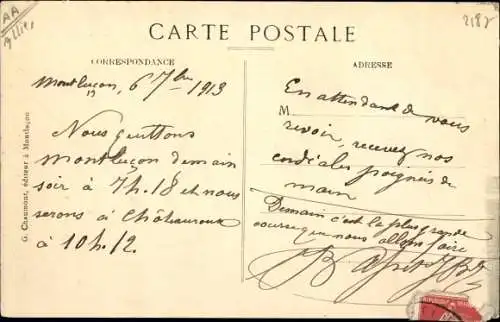 AA
Allier
2182
CARTE POSTALE
CORRESPONDANCE
ADRESSE
Montluçon, 6 7bre 1913
Nous quittons
montluçon demain
soir à 7h.18 et nous
serons à Châteauroux
à 10h.12.
G. Chaumont, éditeur à Montluçon
En attendant de vous
M
revoir, recevez nos
cordiales poignées de
main
Demain c'est la plus grande
course que nous allons faire